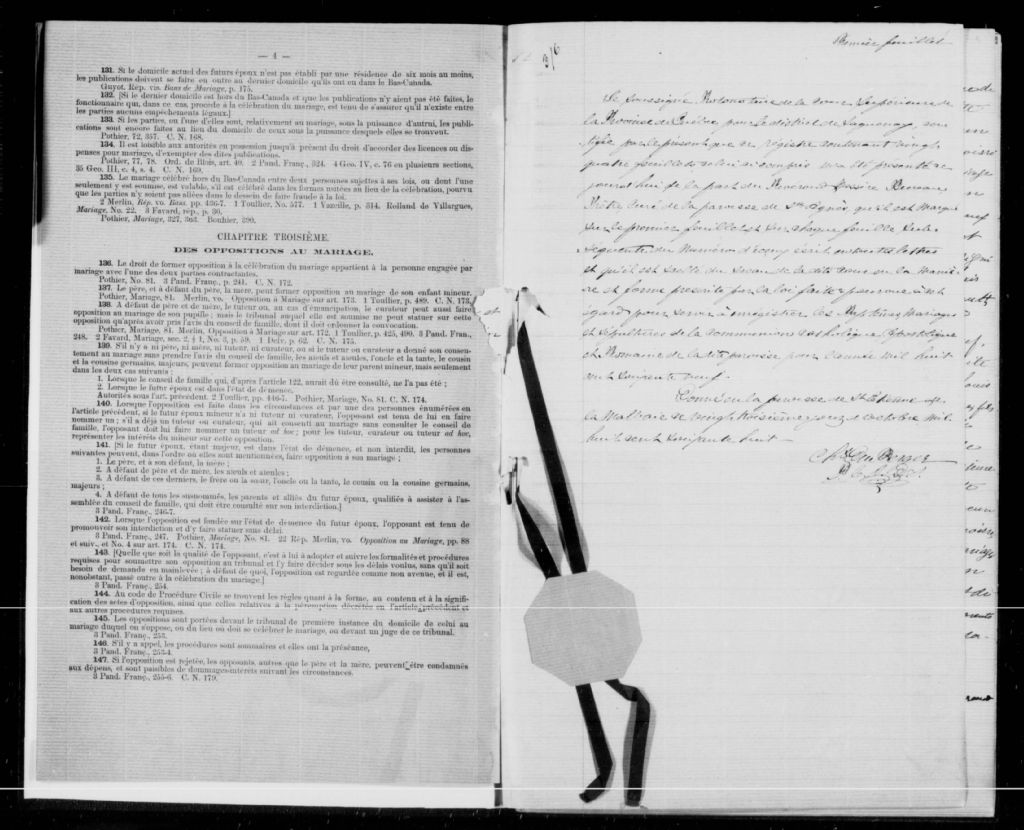 — 4 —
131. Si le domicile actuel des futurs époux n'est pas établi par une résidence de six mois au moins,
les publications doivent se faire en outre au dernier domicile qu'ils ont eu dans le Bas-Canada.
Guyot, Rép. vis. Bans de Mariage, p. 175.
132. [Si le dernier domicile est hors du Bas-Canada et que les publications n'y aient pas été faites, le
fonctionnaire qui, dans ce cas, procède à la célébration du mariage, est tenu de s'assurer qu'il n'existe entre
les parties aucuns empêchements légaux.]
133. Si les parties, ou l'une d'elles sont, relativement au mariage, sous la puissance d'autrui, les publi-
cations sont encore faites au lieu du domicile de ceux sous la puissance desquels elles se trouvent.
Pothier, 72, 357. C. N. 168.
134. Il est loisible aux autorités en possession jusqu'à présent du droit d'accorder des licences ou dis-
penses pour mariage, d'exempter des dites publications.
Pothier, 77, 78. Ord. de Blois, art. 40. 2 Pand. Franç., 324. 4 Geo. IV, c. 76 en plusieurs sections,
35 Geo. III, c. 4, s. 4. C. N. 169.
135. Le mariage célébré hors du Bas-Canada entre deux personnes sujettes à ses lois, ou dont l'une
seulement y est soumise, est valable, s'il est célébré dans les formes usitées au lieu de la célébration, pourvu
que les parties n'y soient pas allées dans le dessein de faire fraude à la loi.
2 Merlin, Rép. vo. Bans, pp. 436-7. 1 Toullier, No. 577. 1 Vazeille, p. 314. Rolland de Villargues,
Mariage, No. 22. 3 Favard, rép., p. 30.
Pothier, Mariage, 327, 363. Bouhier, 390.
CHAPITRE TROISIÈME.
DES OPPOSITIONS AU MARIAGE.
136. Le droit de former opposition à la célébration du mariage appartient à la personne engagée par
mariage avec l'une des deux parties contractantes.
Pothier, No. 81. 3 Pand. Franç., p. 241. C. N. 172.
137. Le père, et à défaut du père, la mère, peut former opposition au mariage de son enfant mineur.
Pothier, Mariage, 81. Merlin, vo. Opposition à Mariage sur art. 173. 1 Toullier, p. 489. C. N. 173.
138. A défaut de père et de mère, le tuteur ou, au cas d'émancipation, le curateur peut aussi faire
opposition au mariage de son pupille ; mais le tribunal auquel elle est soumise ne peut statuer sur cette
opposition qu'après avoir pris l'avis du conseil de famille, dont il doit ordonner la convocation.
Pothier, Mariage, 81. Merlin, Opposition à Mariage sur art. 172. 1 Toullier, p. 425, 490. 3 Pand. Fran.,
248. 2 Favard, Mariage, sec. 2, § 1, No. 3, p. 59. 1 Delv, p. 62. C. N. 175.
139. S'il n'y a ni père, ni mère, ni tuteur, ni curateur, ou si le tuteur ou curateur a donné son consen-
tement au mariage sans prendre l'avis du conseil de famille, les aïeuls et aïeules, l'oncle et la tante, le cousin
et la cousine germains, majeurs, peuvent former opposition au mariage de leur parent mineur, mais seulement
dans les deux cas suivants :
1. Lorsque le conseil de famille qui, d'après l'article 122, aurait dû être consulté, ne l'a pas été ;
2. Lorsque le futur époux est dans l'état de démence.
Autorités sous l'art. précédent. 2 Toullier, pp. 446-7. Pothier, Mariage, No. 81. C. N. 174.
140. Lorsque l'opposition est faite dans les circonstances et par une des personnes énumérées en
l'article précédent, si le futur époux mineur n'a ni tuteur ni curateur, l'opposant est tenu de lui en faire
nommer un ; s'il a déjà un tuteur ou curateur, qui ait consenti au mariage sans consulter le conseil de
famille, l'opposant doit lui faire nommer un tuteur ad hoc ; pour les tuteur, curateur ou tuteur ad hoc,
représenter les intérêts du mineur sur cette opposition.
141. [Si le futur époux, étant majeur, est dans l'état de démence, et non interdit, les personnes
suivantes peuvent, dans l'ordre où elles sont mentionnées, faire opposition à son mariage ;
1. Le père, et à son défaut, la mère ;
2. A défaut de père et de mère, les aïeuls et aïeules ;
3. A défaut de ces derniers, le frère ou la sœur, l'oncle ou la tante, le cousin ou la cousine germains,
majeurs ;
4. A défaut de tous les susnommés, les parents et alliés du futur époux, qualifiés à assister à l'as-
semblée du conseil de famille, qui doit être consulté sur son interdiction.]
3 Pand. Franç., 246-7.
142. Lorsque l'opposition est fondée sur l'état de démence du futur époux, l'opposant est tenu de
promouvoir son interdiction et d'y faire statuer sans délai.
3 Pand. Franç., 247. Pothier, Mariage, No. 81. 22 Rép. Merlin, vo. Opposition au Mariage, pp. 88
et suiv., et No. 4 sur art. 174. C. N. 174.
143. [Quelle que soit la qualité de l'opposant, c'est à lui à adopter et suivre les formalités et procédures
requises pour soumettre son opposition au tribunal et l'y faire décider sous les délais voulus, sans qu'il soit
besoin de demande en mainlevée ; à défaut de quoi, l'opposition est regardée comme non avenue, et il est,
nonobstant, passé outre à la célébration du mariage.]
3 Pand. Franç., 254.
144. Au code de Procédure Civile se trouvent les règles quant à la forme, au contenu et à la signifi-
cation des actes d'opposition, ainsi que celles relatives à la péremption décrétées en l'article précédent et
aux autres procédures requises.
145. Les oppositions sont portées devant le tribunal de première instance du domicile de celui au
mariage duquel on s'oppose, ou du lieu où doit se célébrer le mariage, ou devant un juge de ce tribunal.
3 Pand. Franç., 253.
146. S'il y a appel, les procédures sont sommaires et elles ont la préséance.
3 Pand. Franç., 253-4.
147. Si l'opposition est rejetée, les opposants, autres que le père et la mère, peuvent être condamnés
aux dépens, et sont passibles de dommages-intérêts suivant les circonstances.
3 Pand. Franç., 255-6. C. N. 179.
Premier feuillet
Je soussigné Protonotaire de la Cour Supérieure de
la Province de Québec pour le district de Saguenay, cer-
tifie par le présent que ce registre contenant vingt
quatre feuillets celui-ci compris m'a été présenté ce
jourd'hui de la part du Révérend Messire
Ptre curé de la paroisse de Ste Agnès, qu'il est marqué
sur le premier feuillet et sur chaque feuillet sub-
séquent du numéro d'icelui écrit en toutes lettres
et qu'il est scellé du sceau de la dite cour en la maniè-
re et forme prescrite par la loi faite et pourvue à cet
égard pour servir à enregistrer les Baptêmes Mariages
et Sépultures de la communion catholique Apostolique
et Romaine de la dite paroisse pour l'année mil huit
cent soixante neuf.
Donné en la paroisse de St Etienne de
la Malbaie ce vingt troisième jour d'octobre mil
huit cent soixante huit